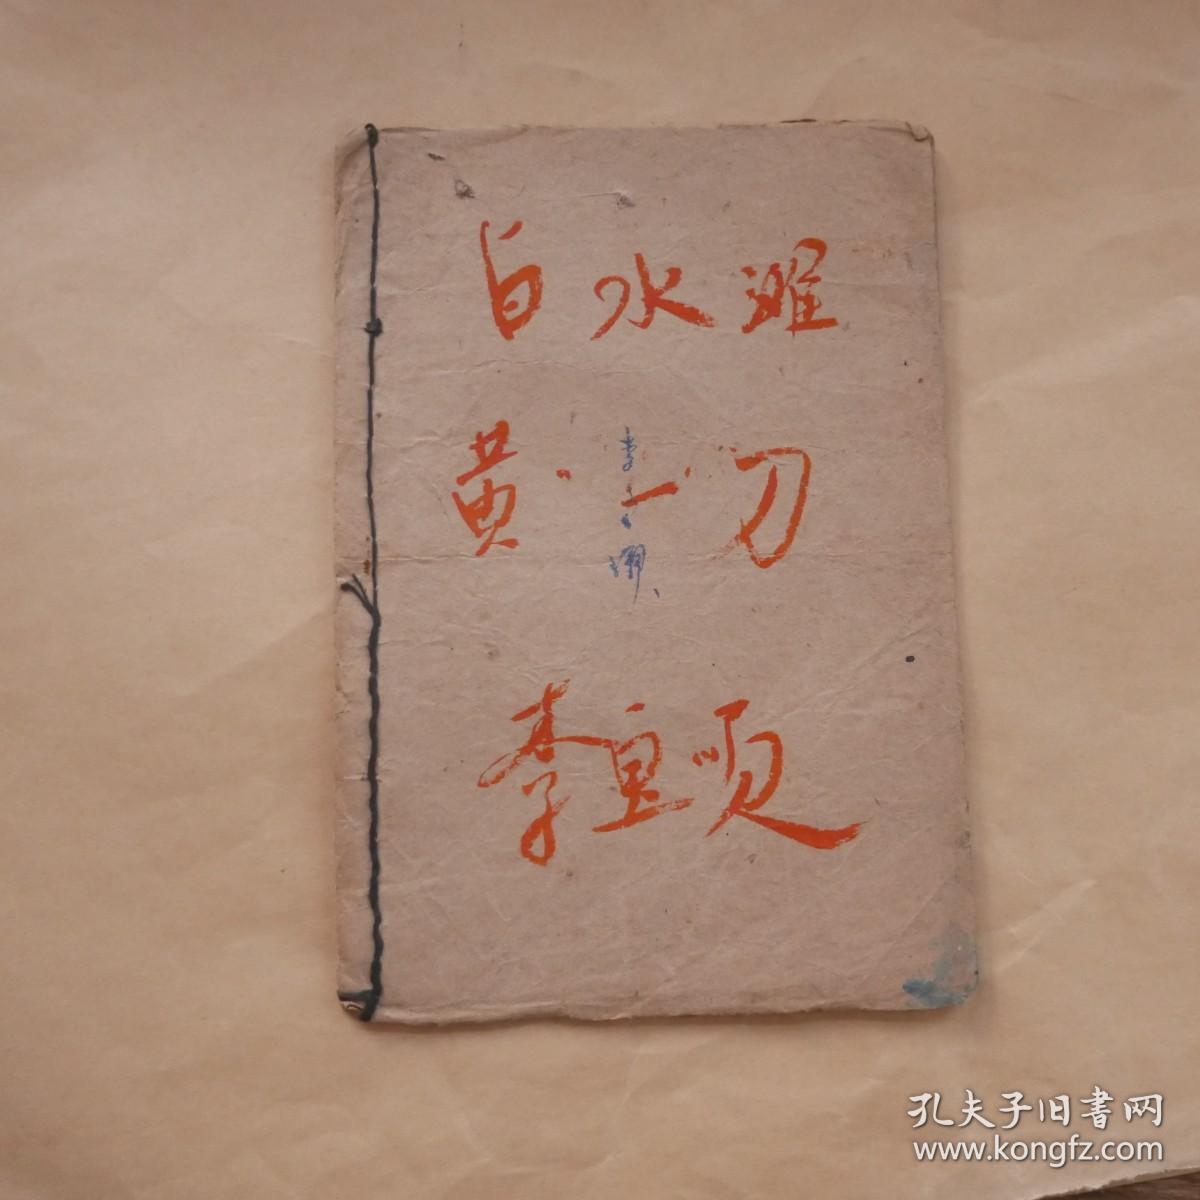 白水滩
黄一刀
李
孔夫子旧書网
www.kongfz.com